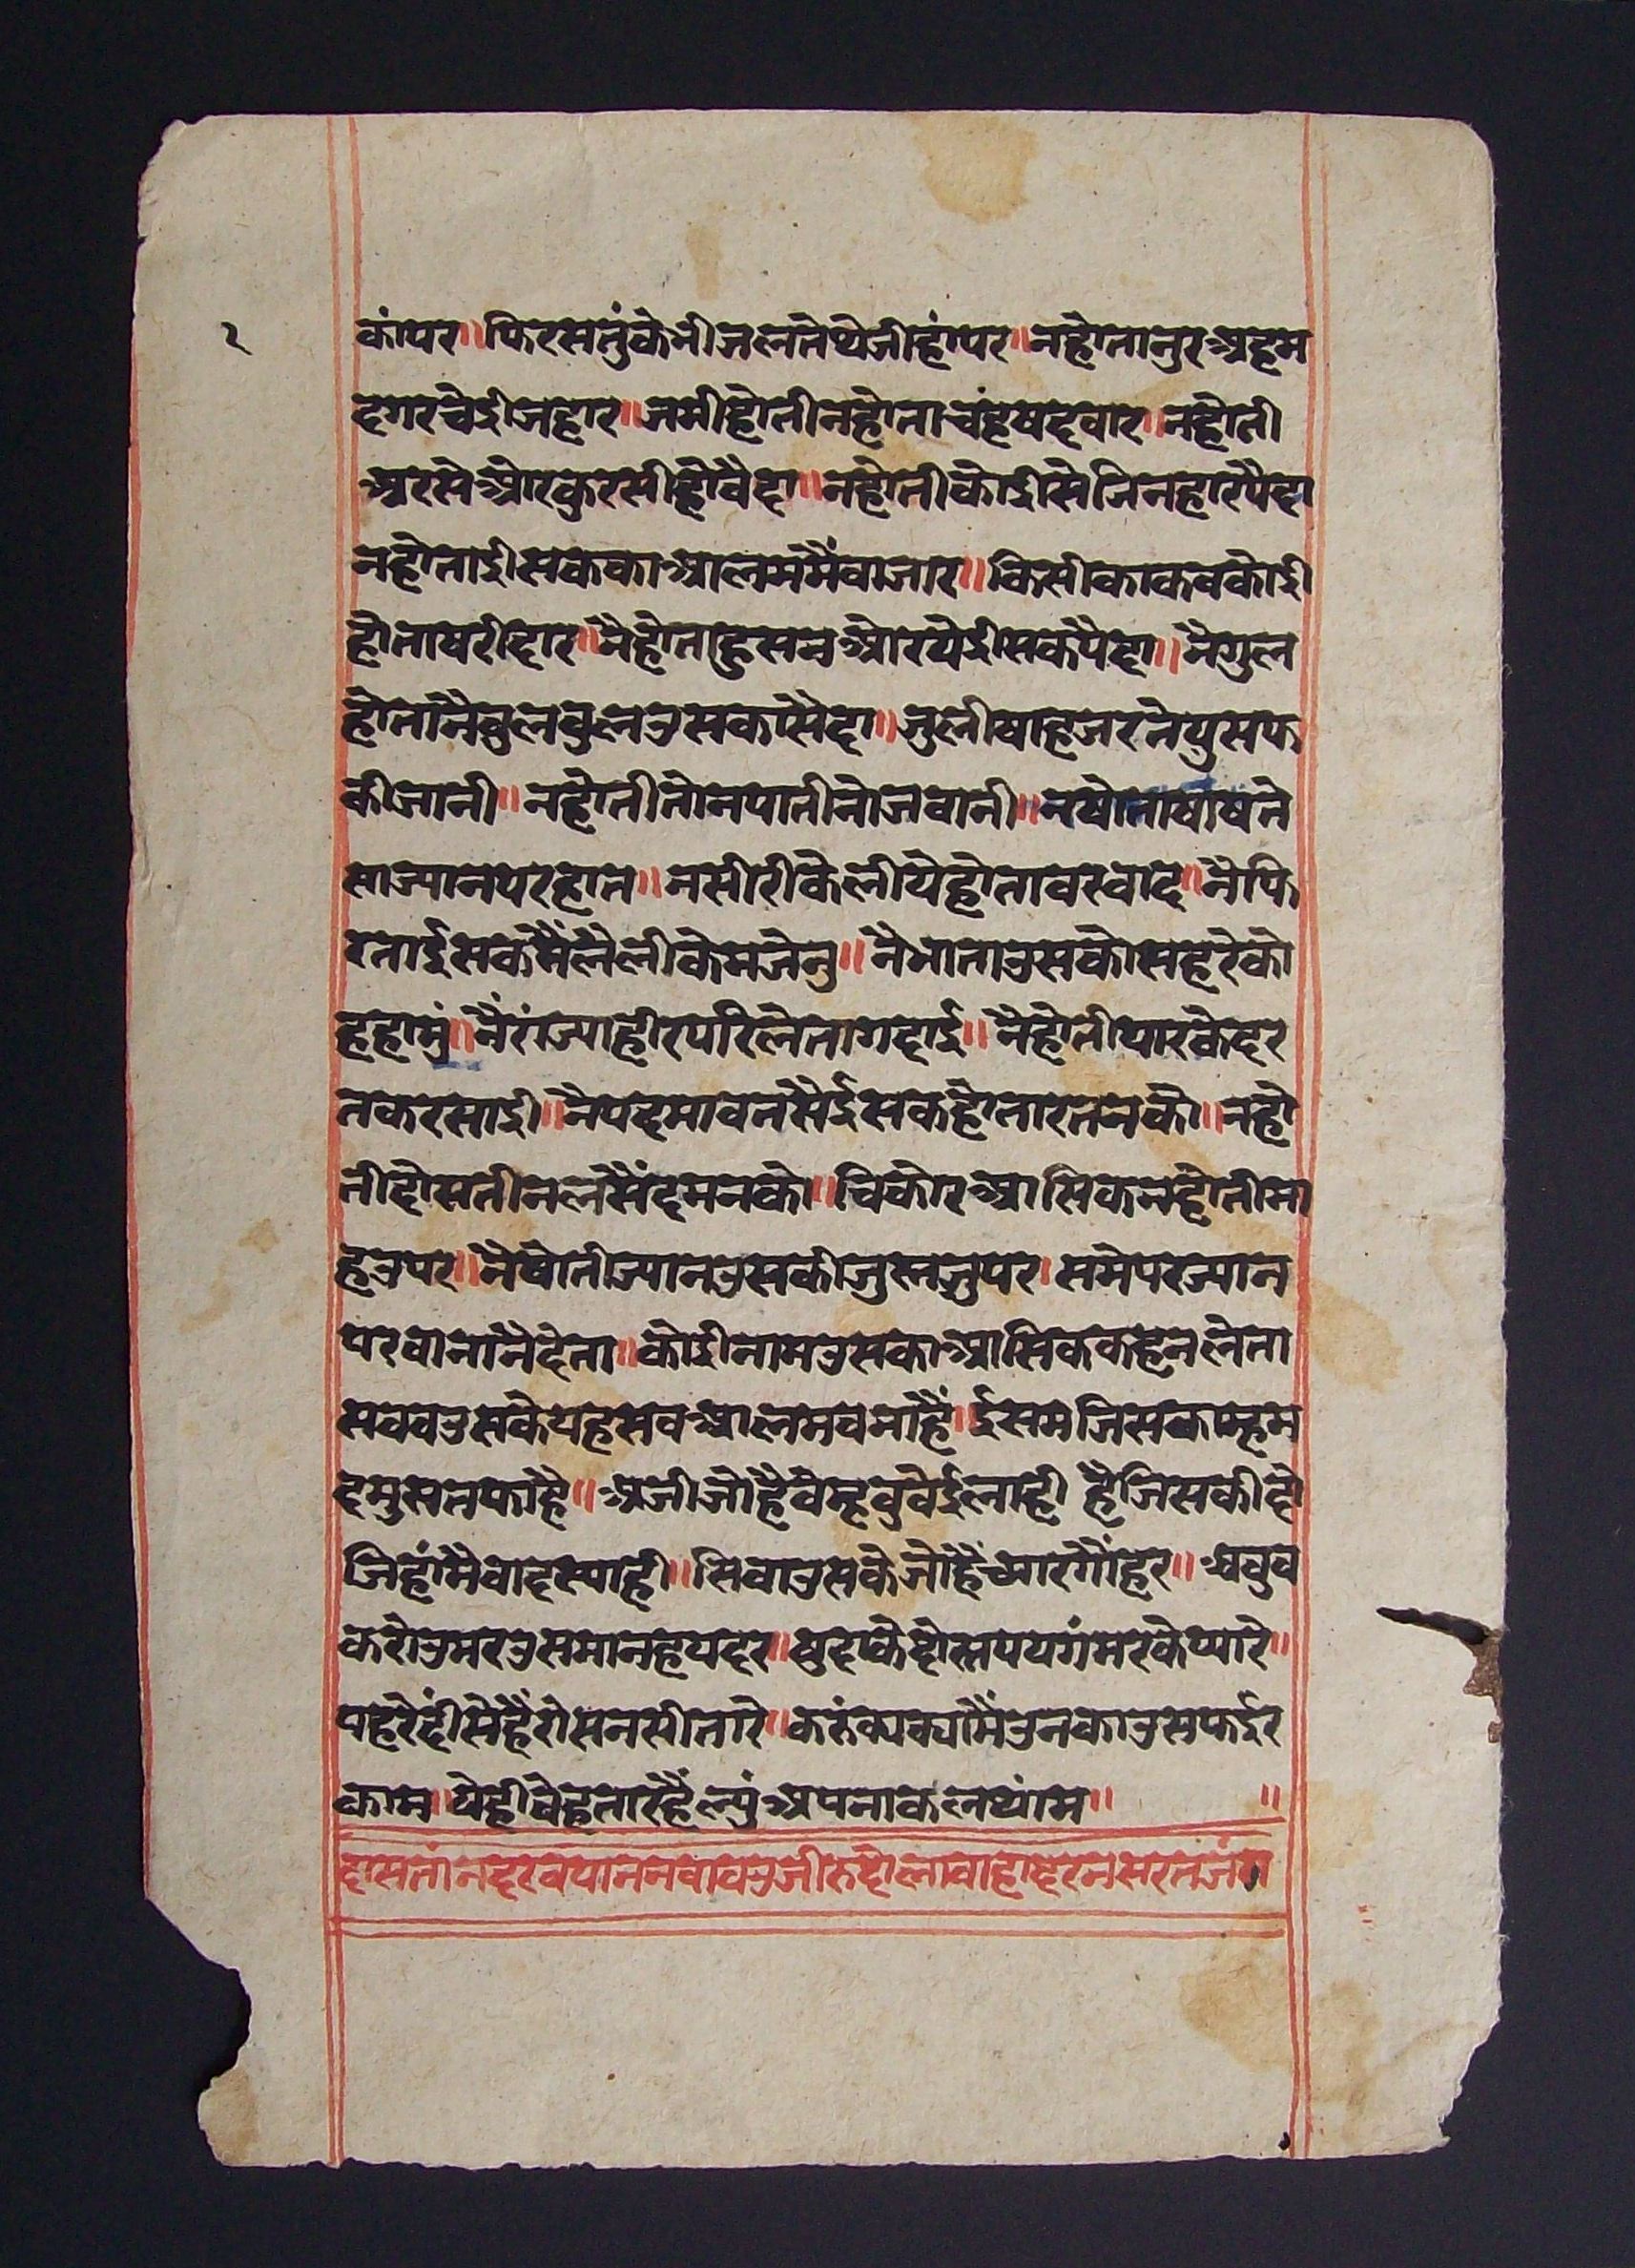 २
कांपर॥फिरसतुंकेभीजलतेथेजीहांपर॥नहोतानुरअहम
दगरचेईीजहार॥जमीहोतीनहोताचंदषदवार॥नहोती
अरसेओरकुरसीहोवैदा॥नहोतीकोईीसेजिनहारपैदा
नहोताईीसककाआलममैंवाजार॥किसीकाकवकोईी
होताषरीदार॥नैहोताहुसनओरयेईीसकपैदा॥नैगुल
होतानैवुलवुलउसकासैदा॥जुलीषाहजरतेयुसफ
कीजानी॥नहोतीतोनपातीनोजवानी॥नषोता
नसीरीकेलीयेहोतावरवाद॥नैफि
रतार्ईसकमैंलैलीकेमजेनु॥नैभाताउसकोसहरेको
हहामुं॥नैरांज्याहीरपरिलेतागदाई॥नैहोतीयारकेदर
तकरसाईी॥नैपदमावतसेर्ईसकहोतारतनको॥नहो
तीदोसतीनलसैंदमनको॥चिकोरआसिकनहोतीमा
हउपर॥नैषोतीज्यानउसकीजुसतजुपर॥समेपरज्यान
परवानानैदेता॥कोईीनामउसकाआसिककहनलेता
सववउसकेयहसवआलमवनाहै॥र्ईसमजिसका
दमुसतफाहै॥अजीजोहैवेर्ईलाही हैजिसकीदो
जिहांमैवादस्याही॥सिवाउसकेजोहैंच्यारगौंहर॥अवुव
करोउमरउसमानहयदर॥षुदाकेदोस्तपयगंमरकेप्यारे॥
यहरेदींसेहैंरोसनसीतारे॥करुंक्यक्यामैंउनकाउसफर्ईर
काम॥येहीवेहतारहैंल्युंअपनाकलथांम॥ ॥
दासतांनदरवयाननवावउजीरुदोलावाहादरनसरतजंग